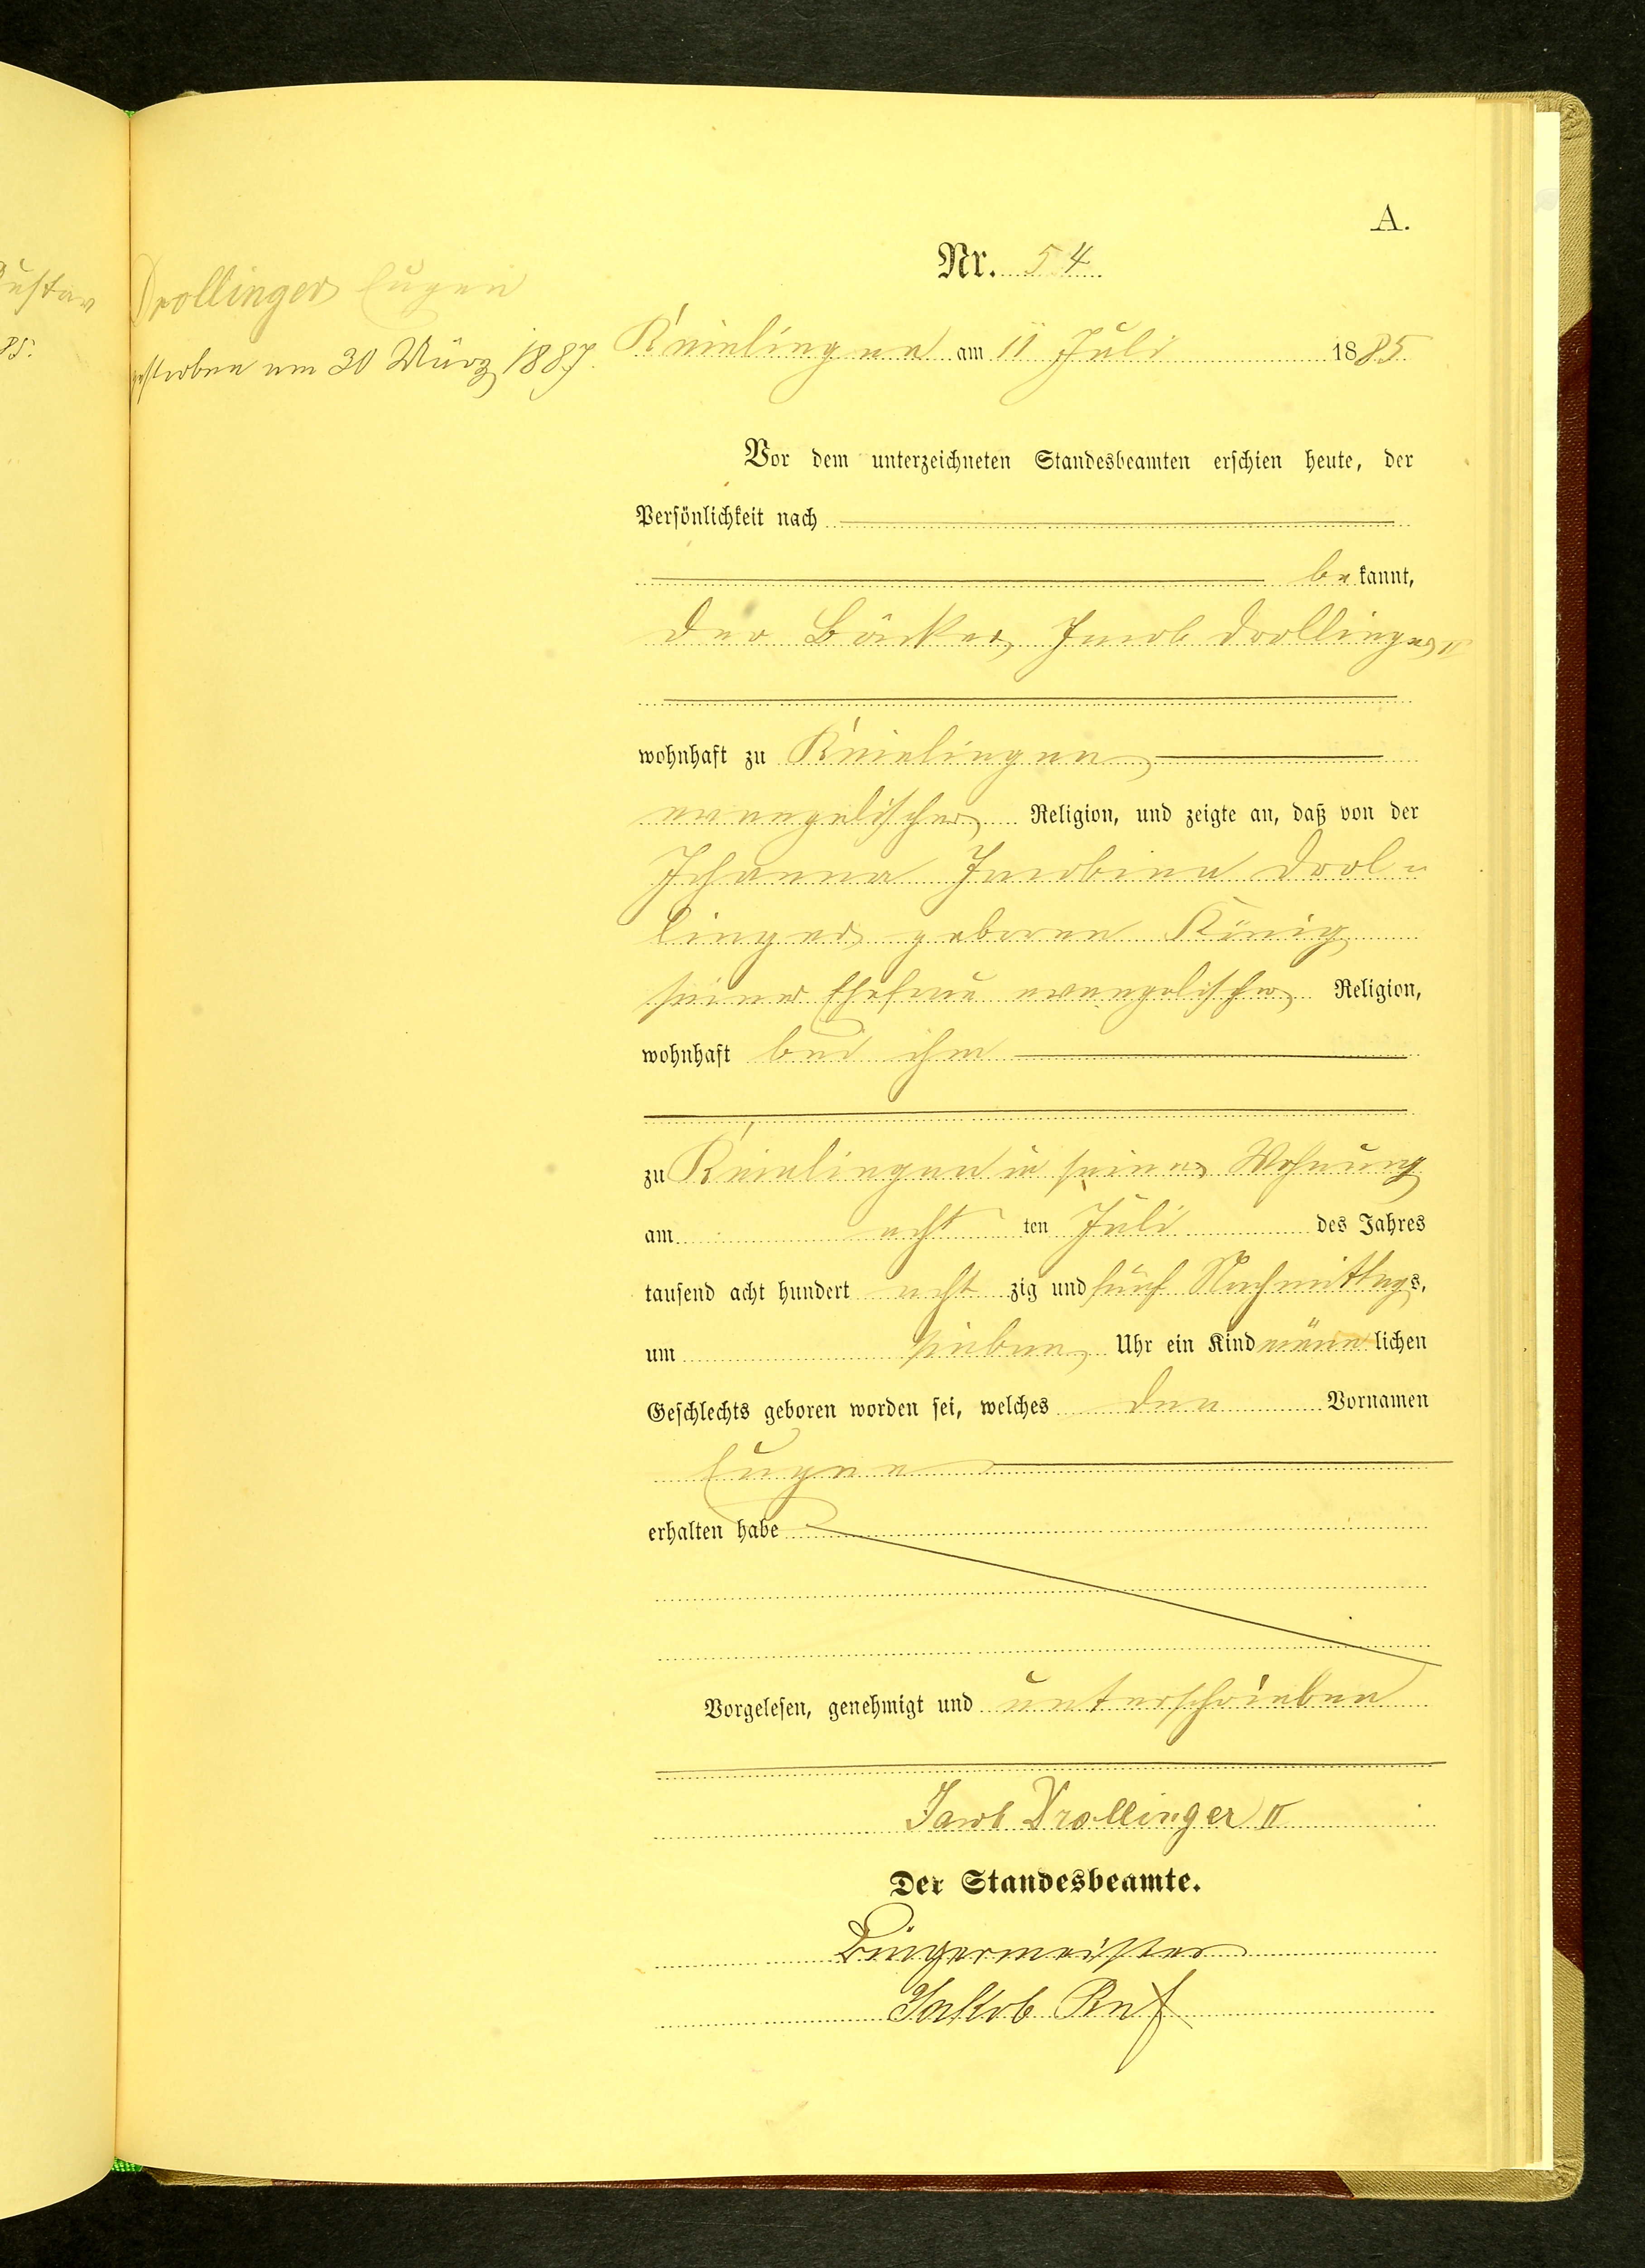 A.
Nr. 54
Drollinger Eugen
gestorben am 30 März 1887.
Knielingen am 11 Juli 1885
Vor dem unterzeichneten Standesbeamten erschien heute, der
Persönlichkeit nach
bekannt,
der Bäcker Jacob Drollinger II
wohnhaft zu Knielingen
evangelischer Religion, und zeigte an, daß von der
Johanna Jacobina Drol-
linger geborene König
seiner Ehefrau evangelischer Religion,
wohnhaft bei ihm
zu Knielingen in seiner Wohnung
am acht ten Juli des Jahres
tausend acht hundert acht zig und fünf Nachmittags
um sieben Uhr ein Kind männlichen
Geschlechts geboren worden sei, welches den Vornamen
Eugen
erhalten habe
Vorgelesen, genehmigt und unterschrieben
Jacob Drollinger II
Der Standesbeamte.
Bürgermeister
Jakob Ruf